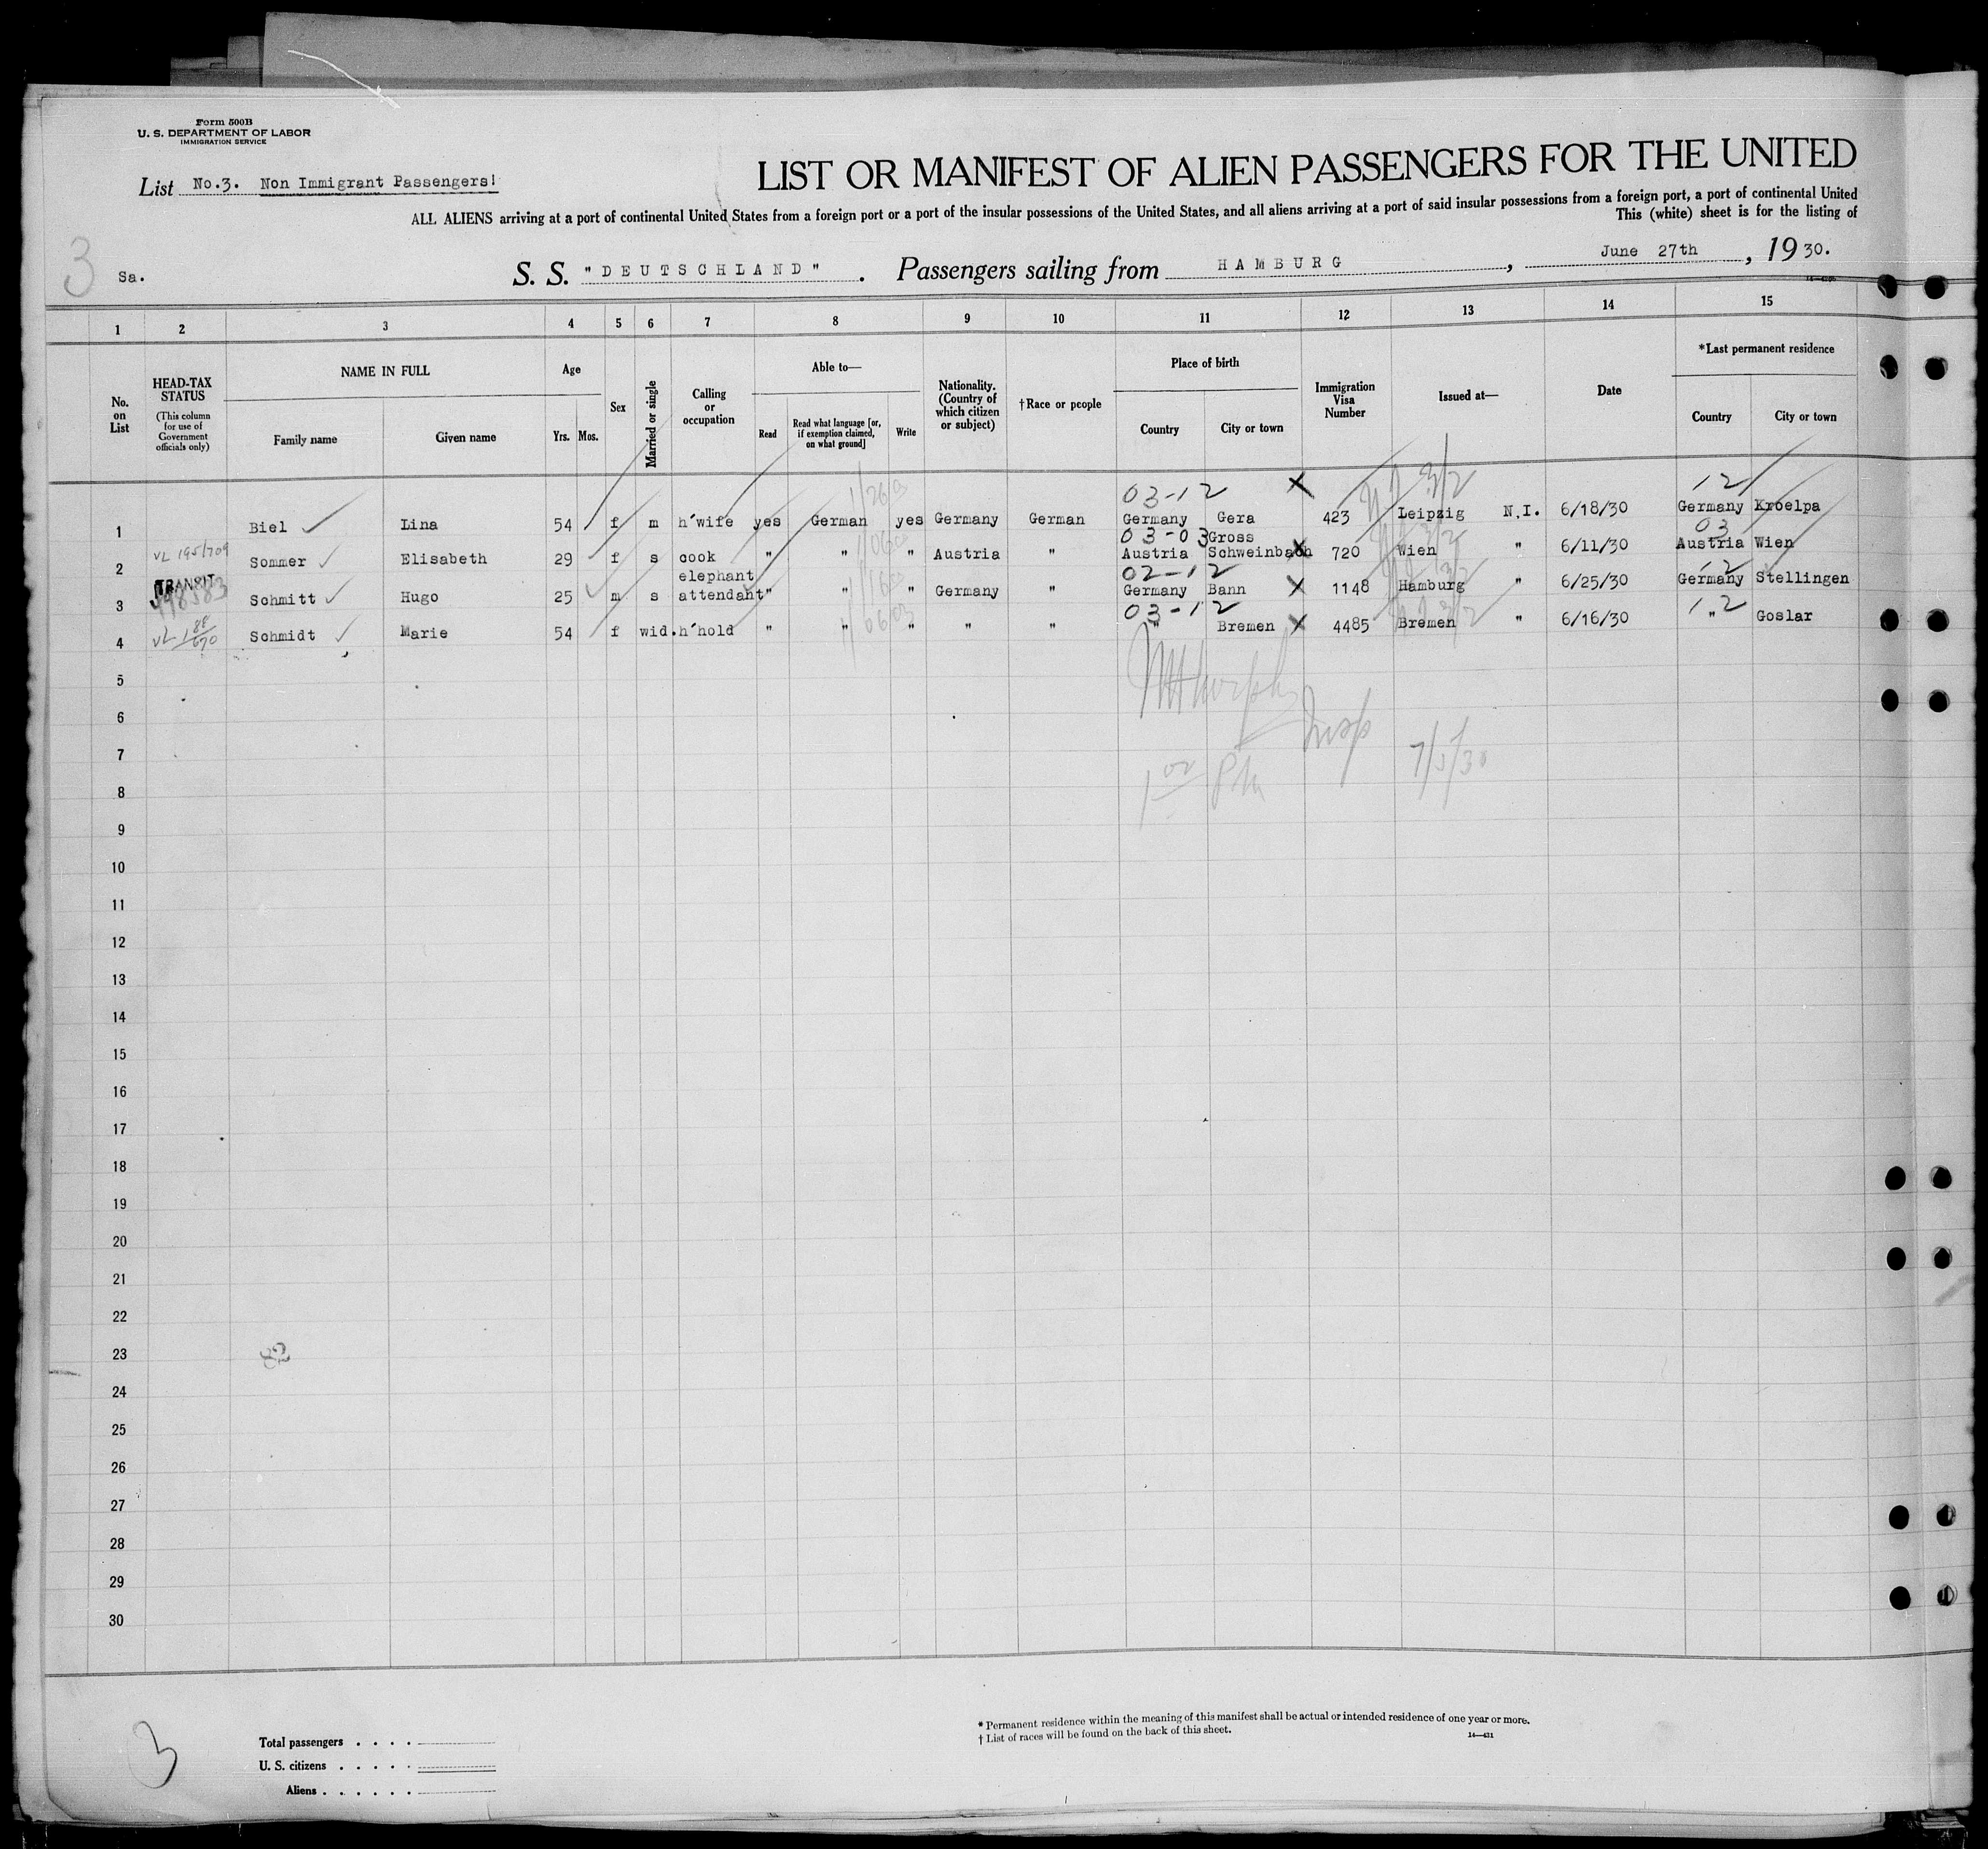 Form 500B
U. S. DEPARTMENT OF LABOR
IMMIGRATION SERVICE
List No.3. Non Immigrant Passengers!
LIST OR MANIFEST OF ALIEN PASSENGERS FOR THE UNITED
ALL ALIENS arriving at a port of continental United States from a foreign port or a port of the insular possessions of the United States, and all aliens arriving at a port of said insular possessions from a foreign port, a port of continental United
This (white) sheet is for the listing of
3 Sa. S. S. "DEUTSCHLAND". Passengers sailing from HAMBURG, June 27th, 1930.
1 2 3 4 5 6 7 8 9 10 11 12 13 14 15
No. on List
HEAD-TAX STATUS (This column for use of Government officials only)
NAME IN FULL
Family name Given name
Age
Yrs. Mos.
Sex
Married or single
Calling or occupation
Able to—
Read Read what language [or, if exemption claimed, on what ground] Write
Nationality. (Country of which citizen or subject)
†Race or people
Place of birth
Country City or town
Immigration Visa Number
Issued at—
Date
*Last permanent residence
Country City or town
03-12 X 12
1 Biel Lina 54 f m h'wife yes German yes Germany German Germany Gera 423 Leipzig N.I. 6/18/30 Germany Kroelpa
03-03 03
2 VL 195/709 Sommer Elisabeth 29 f s cook " " " Austria " Austria Gross Schweinbach X 720 Wien " 6/11/30 Austria Wien
02-12 12
3 TRANSIT 498583 Schmitt Hugo 25 m s elephant attendant " " " Germany " Germany Bann X 1148 Hamburg " 6/25/30 Germany Stellingen
03-12 12
4 VL 188/670 Schmidt Marie 54 f wid. h'hold " " " " " " Bremen X 4485 Bremen " 6/16/30 " Goslar
5
6
Insp
7 7/5/30
8 1 00 PM
9
10
11
12
13
14
15
16
17
18
19
20
21
22
23
24
25
26
27
28
29
30
3
Total passengers . . . .
U. S. citizens . . . . .
Aliens . . . . . .
* Permanent residence within the meaning of this manifest shall be actual or intended residence of one year or more.
† List of races will be found on the back of this sheet.
14—431